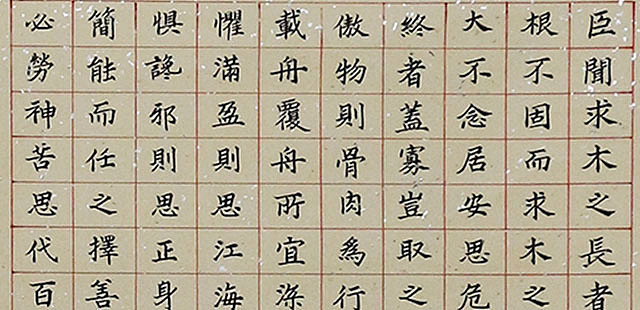 臣聞求木之長者
根不固而求木之
大不念居安思危
終者蓋寡豈取之
傲物則骨肉為行
載舟覆舟所宜深
懼滿盈則思江海
惧讒邪則思正身
簡能而任之擇善
必勞神苦思代百